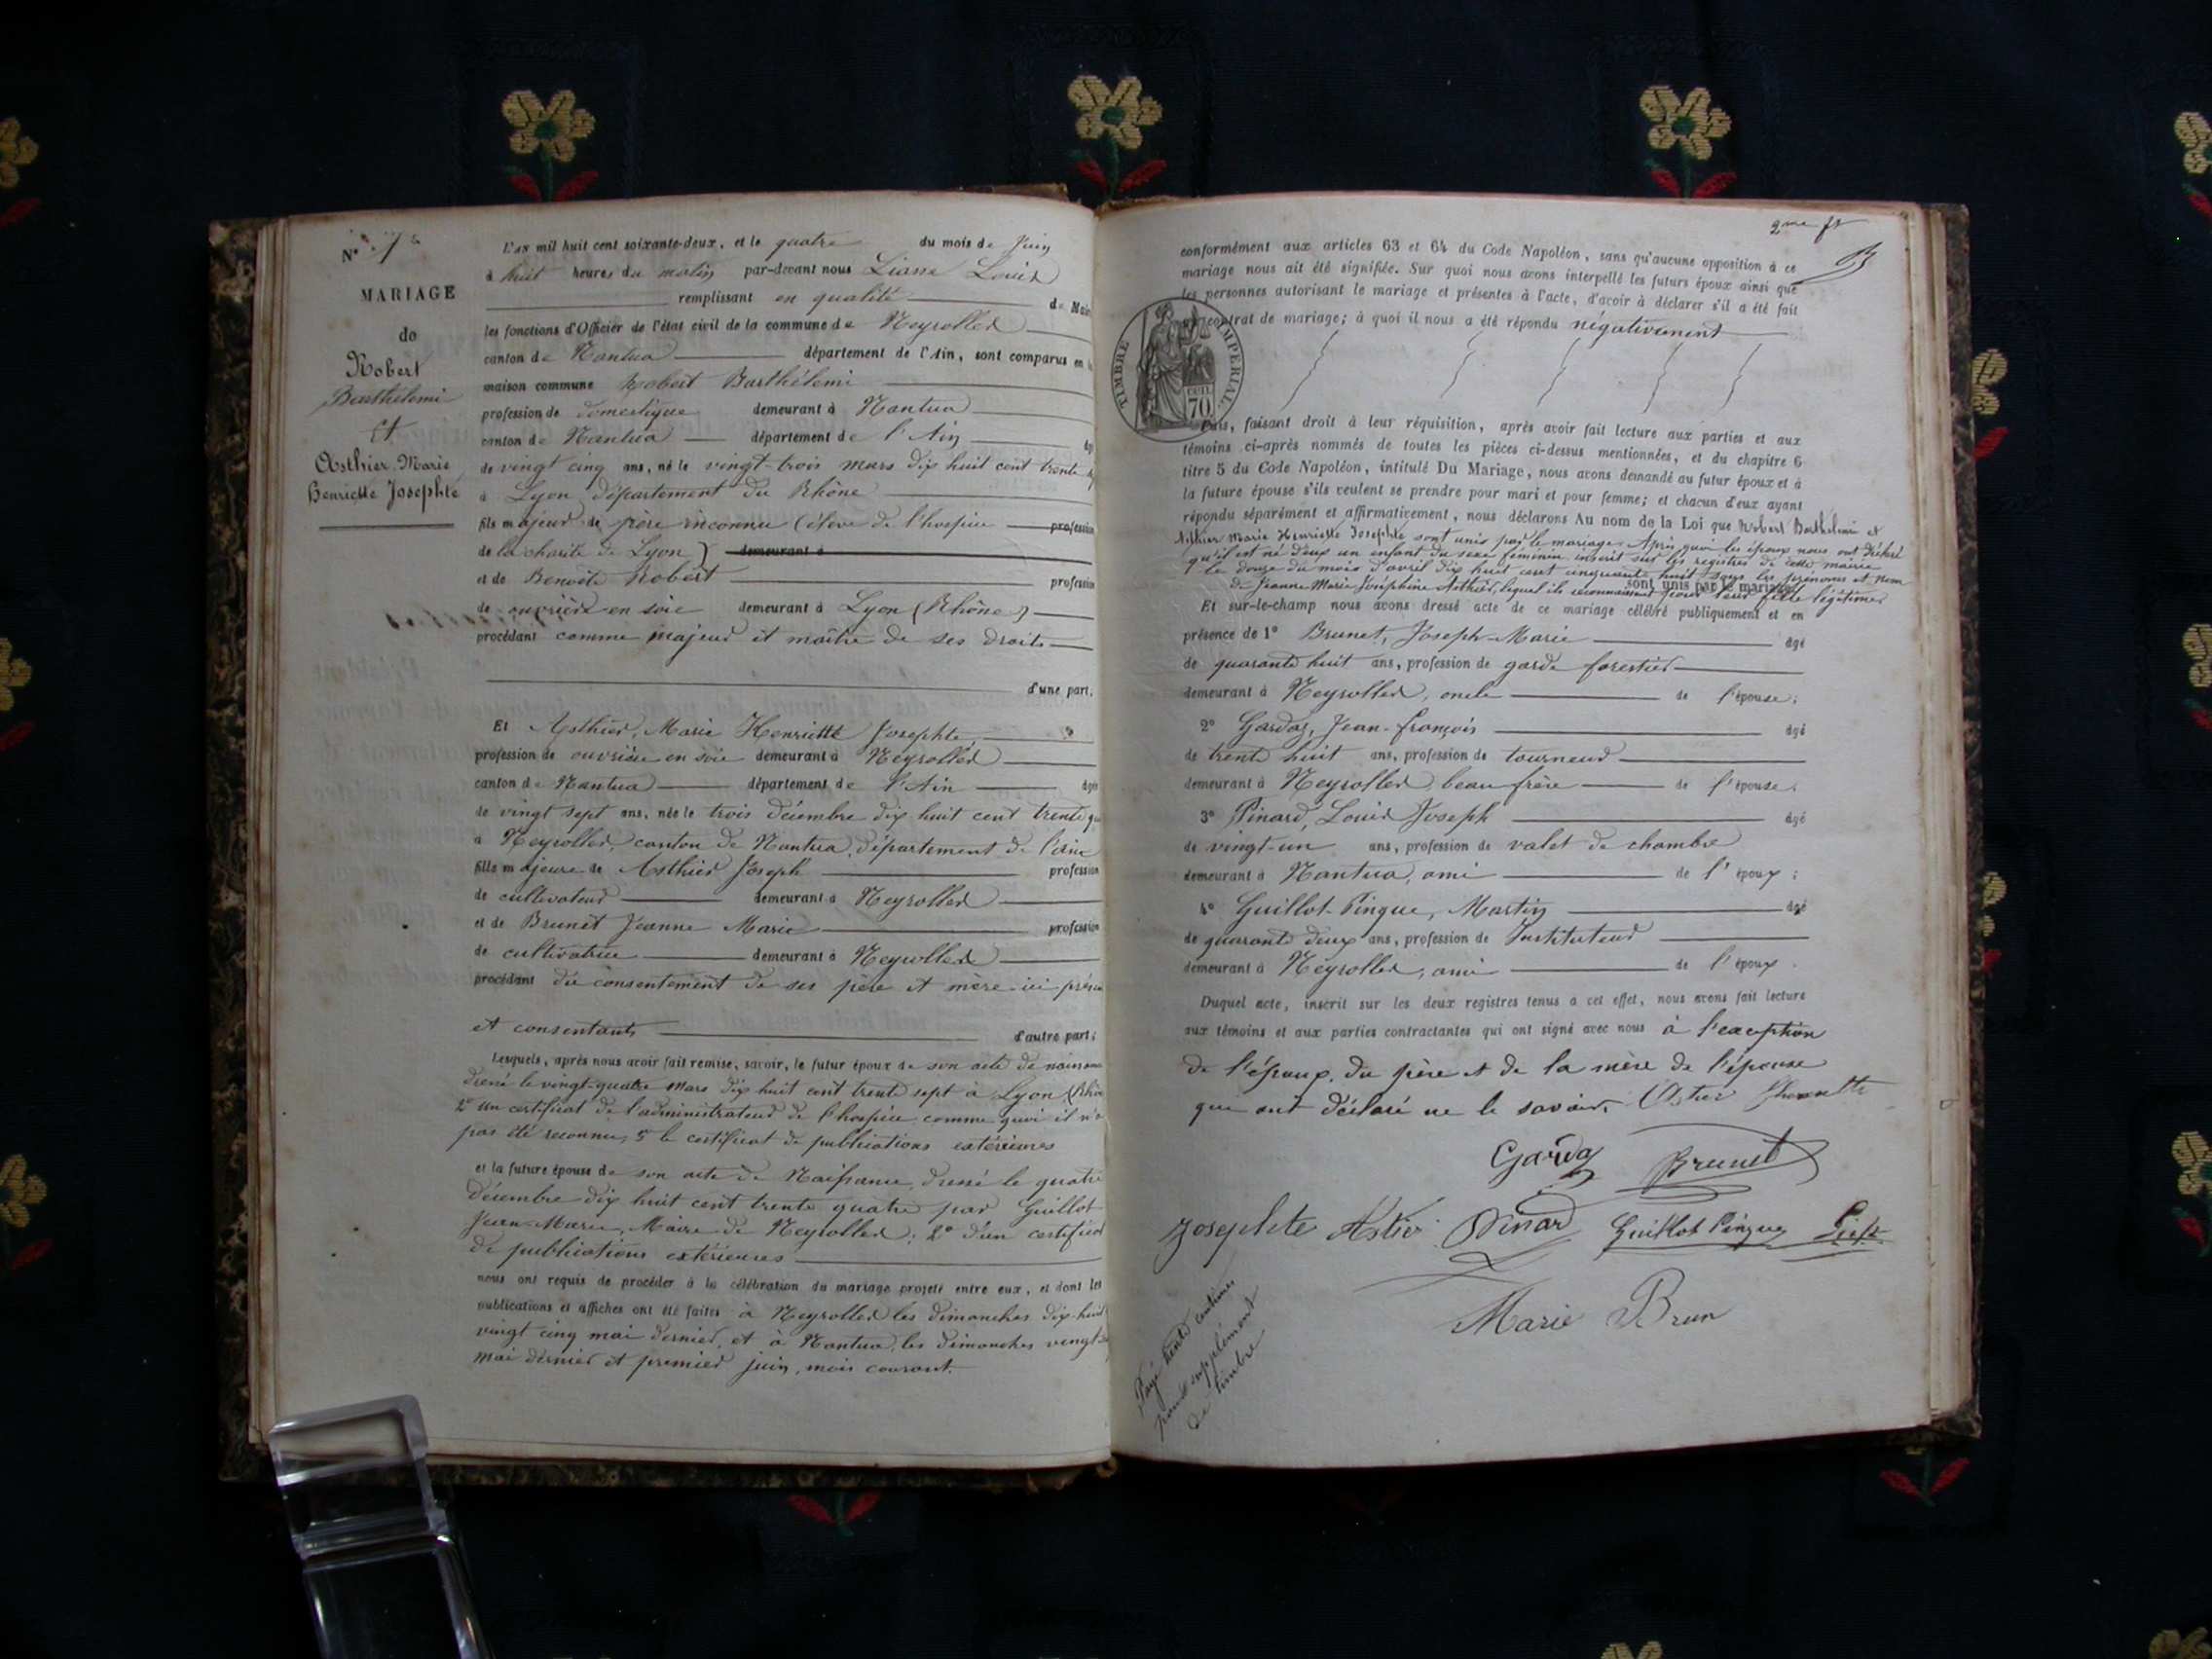 N° 7
MARIAGE
de
Robert
Barthélemi
Et
Asthier Marie
Henriette Josephte
L'an mil huit cent soixante-deux, et le quatre du mois de juin
à huit heures du matin par-devant nous Liasse Louis
remplissant en qualité de Maire
les fonctions d'Officier de l'état civil de la commune de Neyrolles
canton de Nantua département de l'Ain, sont comparus en la
maison commune Robert Barthélemi
profession de domestique demeurant à Nantua
canton de Nantua département de l'Ain âgé
de vingt cinq ans, né le vingt-trois mars dix huit cent trente
à Lyon département du Rhône
fils majeur de père inconnu (élève de l'hospice profession
de la charité de Lyon) demeurant à
et de Benoîte Robert profession
de ouvrière en soie demeurant à Lyon (Rhône)
procédant comme majeur et maître de ses droits
d'une part.
Et Asthier, Marie Henriette Josephte
profession de ouvrière en soie demeurant à Neyrolles
canton de Nantua département de l'Ain âgée
de vingt sept ans, née le trois décembre dix huit cent trente
à Neyrolles, canton de Nantua, département de l'Ain
fille majeure de Asthier Joseph profession
de cultivateur demeurant à Neyrolles
et de Brunet Jeanne Marie profession
de cultivatrice demeurant à Neyrolles
procédant du consentement de ses père et mère ici présents
et consentants d'autre part;
Lesquels, après nous avoir fait remise, savoir, le futur époux de son acte de naissance
dressé le vingt-quatre mars dix huit cent trente sept à Lyon (Rhône
2° un certificat de l'administrateur de l'hospice comme quoi il n'a
pas été reconnu, 3° le certificat de publications extérieures
et la future épouse de son acte de Naissance, dressé le quatre
décembre dix huit cent trente quatre par Guillot
Jean-Marie, Maire de Neyrolles; 2° d'un certificat
de publications extérieures
nous ont requis de procéder à la célébration du mariage projeté entre eux, et dont les
publications et affiches ont été faites à Neyrolles les dimanches dix-huit
vingt cinq mai dernier, et à Nantua, les dimanches vingt
mai dernier et premier juin, mois courant.
2me ft
conformément aux articles 63 et 64 du Code Napoléon, sans qu'aucune opposition à ce
mariage nous ait été signifiée. Sur quoi nous avons interpellé les futurs époux ainsi que
les personnes autorisant le mariage et présentes à l'acte, d'avoir à déclarer s'il a été fait
un contrat de mariage; à quoi il nous a été répondu négativement
TIMBRE IMPERIAL
70
Puis, faisant droit à leur réquisition, après avoir fait lecture aux parties et aux
témoins ci-après nommés de toutes les pièces ci-dessus mentionnées, et du chapitre 6
titre 5 du Code Napoléon, intitulé Du Mariage, nous avons demandé au futur époux et à
la future épouse s'ils veulent se prendre pour mari et pour femme; et chacun d'eux ayant
répondu séparément et affirmativement, nous déclarons Au nom de la Loi que Robert Barthélemi et
Asthier Marie Henriette Josephte sont unis par le mariage. Après quoi les époux nous ont déclaré
qu'il est né d'eux un enfant du sexe féminin inscrit sur les registres de cette mairie
le douze du mois d'avril dix huit cent cinquante huit sous les prénoms et nom
de Jeanne Marie Joséphine Asthier, lequel ils reconnaissent pour leur fille légitime.
sont unis par le mariage.
Et sur-le-champ nous avons dressé acte de ce mariage célébré publiquement et en
présence de 1° Brunet, Joseph-Marie âgé
de quarante huit ans, profession de garde forestier
demeurant à Neyrolles, oncle de l'épouse;
2° Gardaz, Jean-François âgé
de trente huit ans, profession de tourneur
demeurant à Neyrolles, beau frère de l'épouse;
3° Pinard, Louis Joseph âgé
de vingt-un ans, profession de valet de chambre
demeurant à Nantua, ami de l'époux;
4° Guillot-Pingue, Martin âgé
de quarante deux ans, profession de Instituteur
demeurant à Neyrolles, ami de l'époux.
Duquel acte, inscrit sur les deux registres tenus à cet effet, nous avons fait lecture
aux témoins et aux parties contractantes qui ont signé avec nous à l'exception
de l'époux, du père et de la mère de l'épouse
qui ont déclaré ne le savoir. Astier
Gardaz Brunet
Josephte Astier Pinard Guillot Pingue
Marie Brun
Payé trente centimes
pour supplément
de timbre